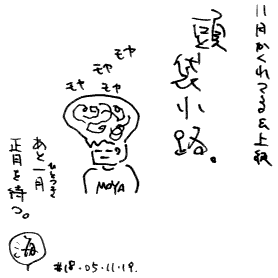 11月かくれてる&上級
頭
袋小路。
モヤ
モヤ
モヤ
モヤ
MOYA
あと一月
ひとつき
正月を待つ。
#18.05.11.19.